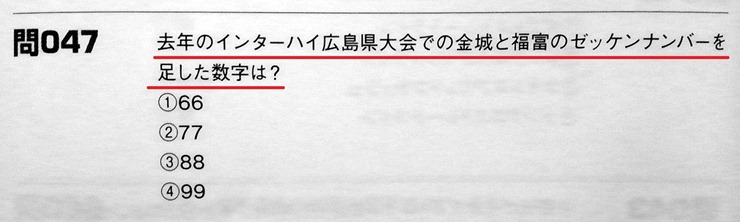 問047
去年のインターハイ広島県大会での金城と福富のゼッケンナンバーを
足した数字は？
①66
②77
③88
④99